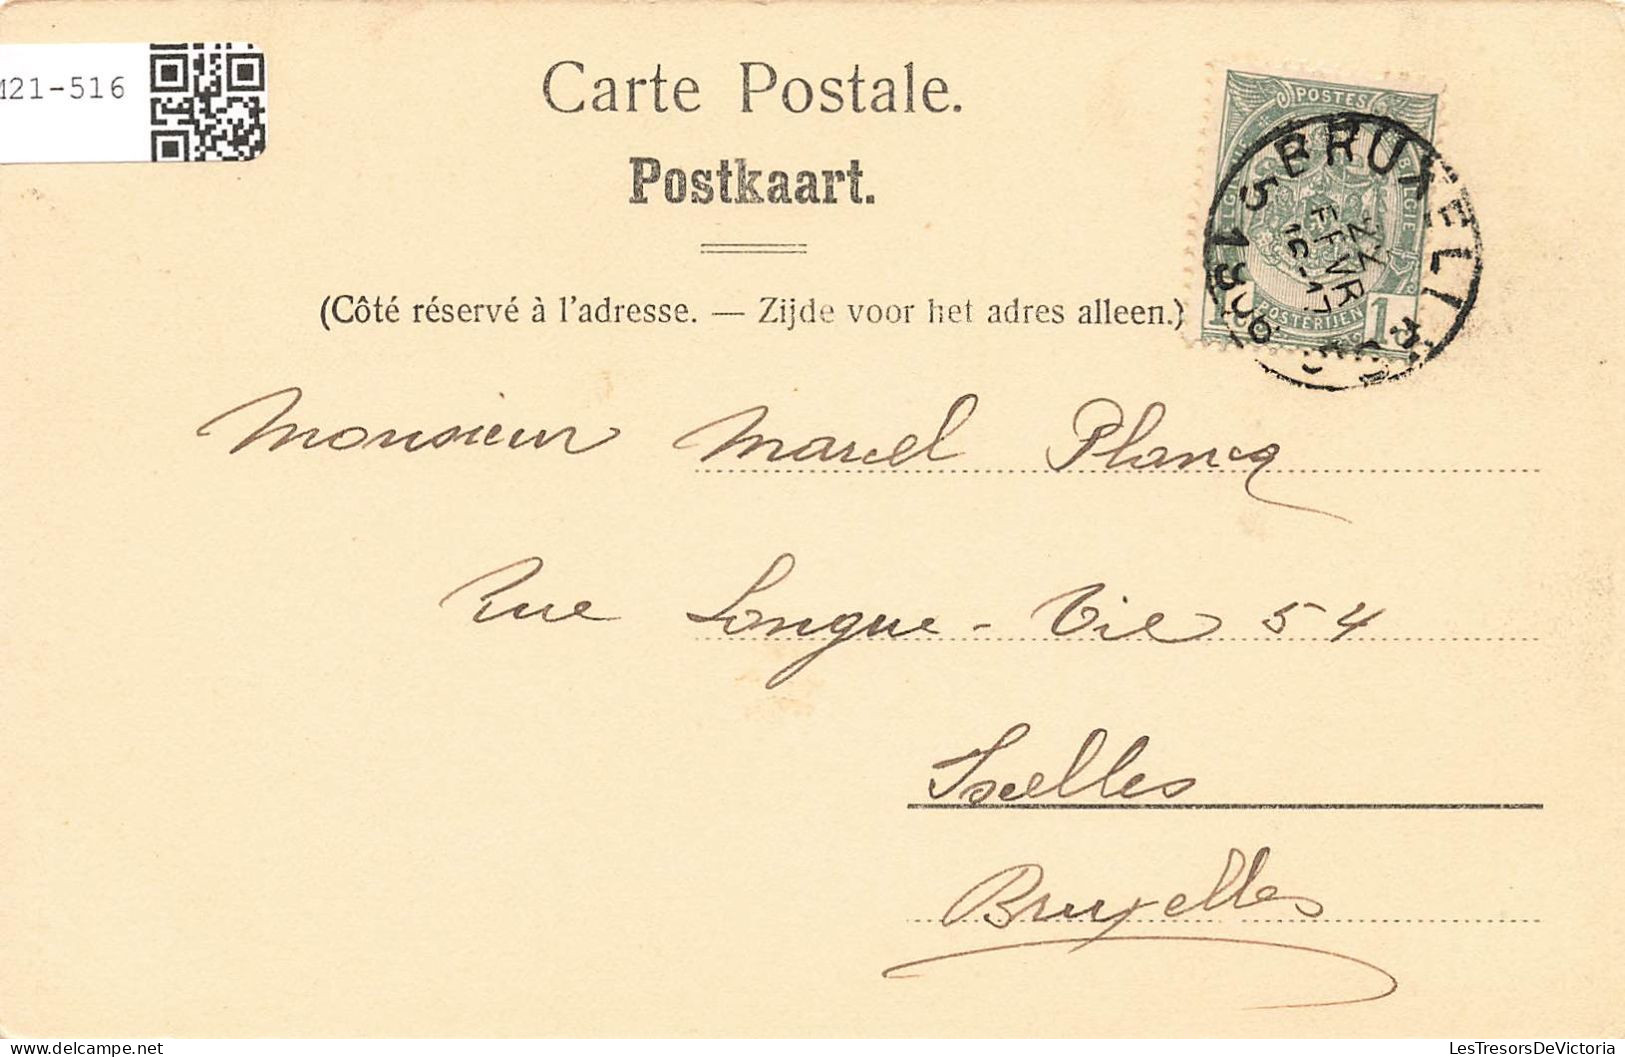 M21-516
Carte Postale.
Postkaart.
(Côté réservé à l'adresse. — Zijde voor het adres alleen.)
POSTES
POSTERIJEN
1
BRUXELL
5
FEVR
16-17
Monsieur Marcel Plancq
Rue Longue-Vie 54
Ixelles
Bruxelles
LesTresorsDeVictoria